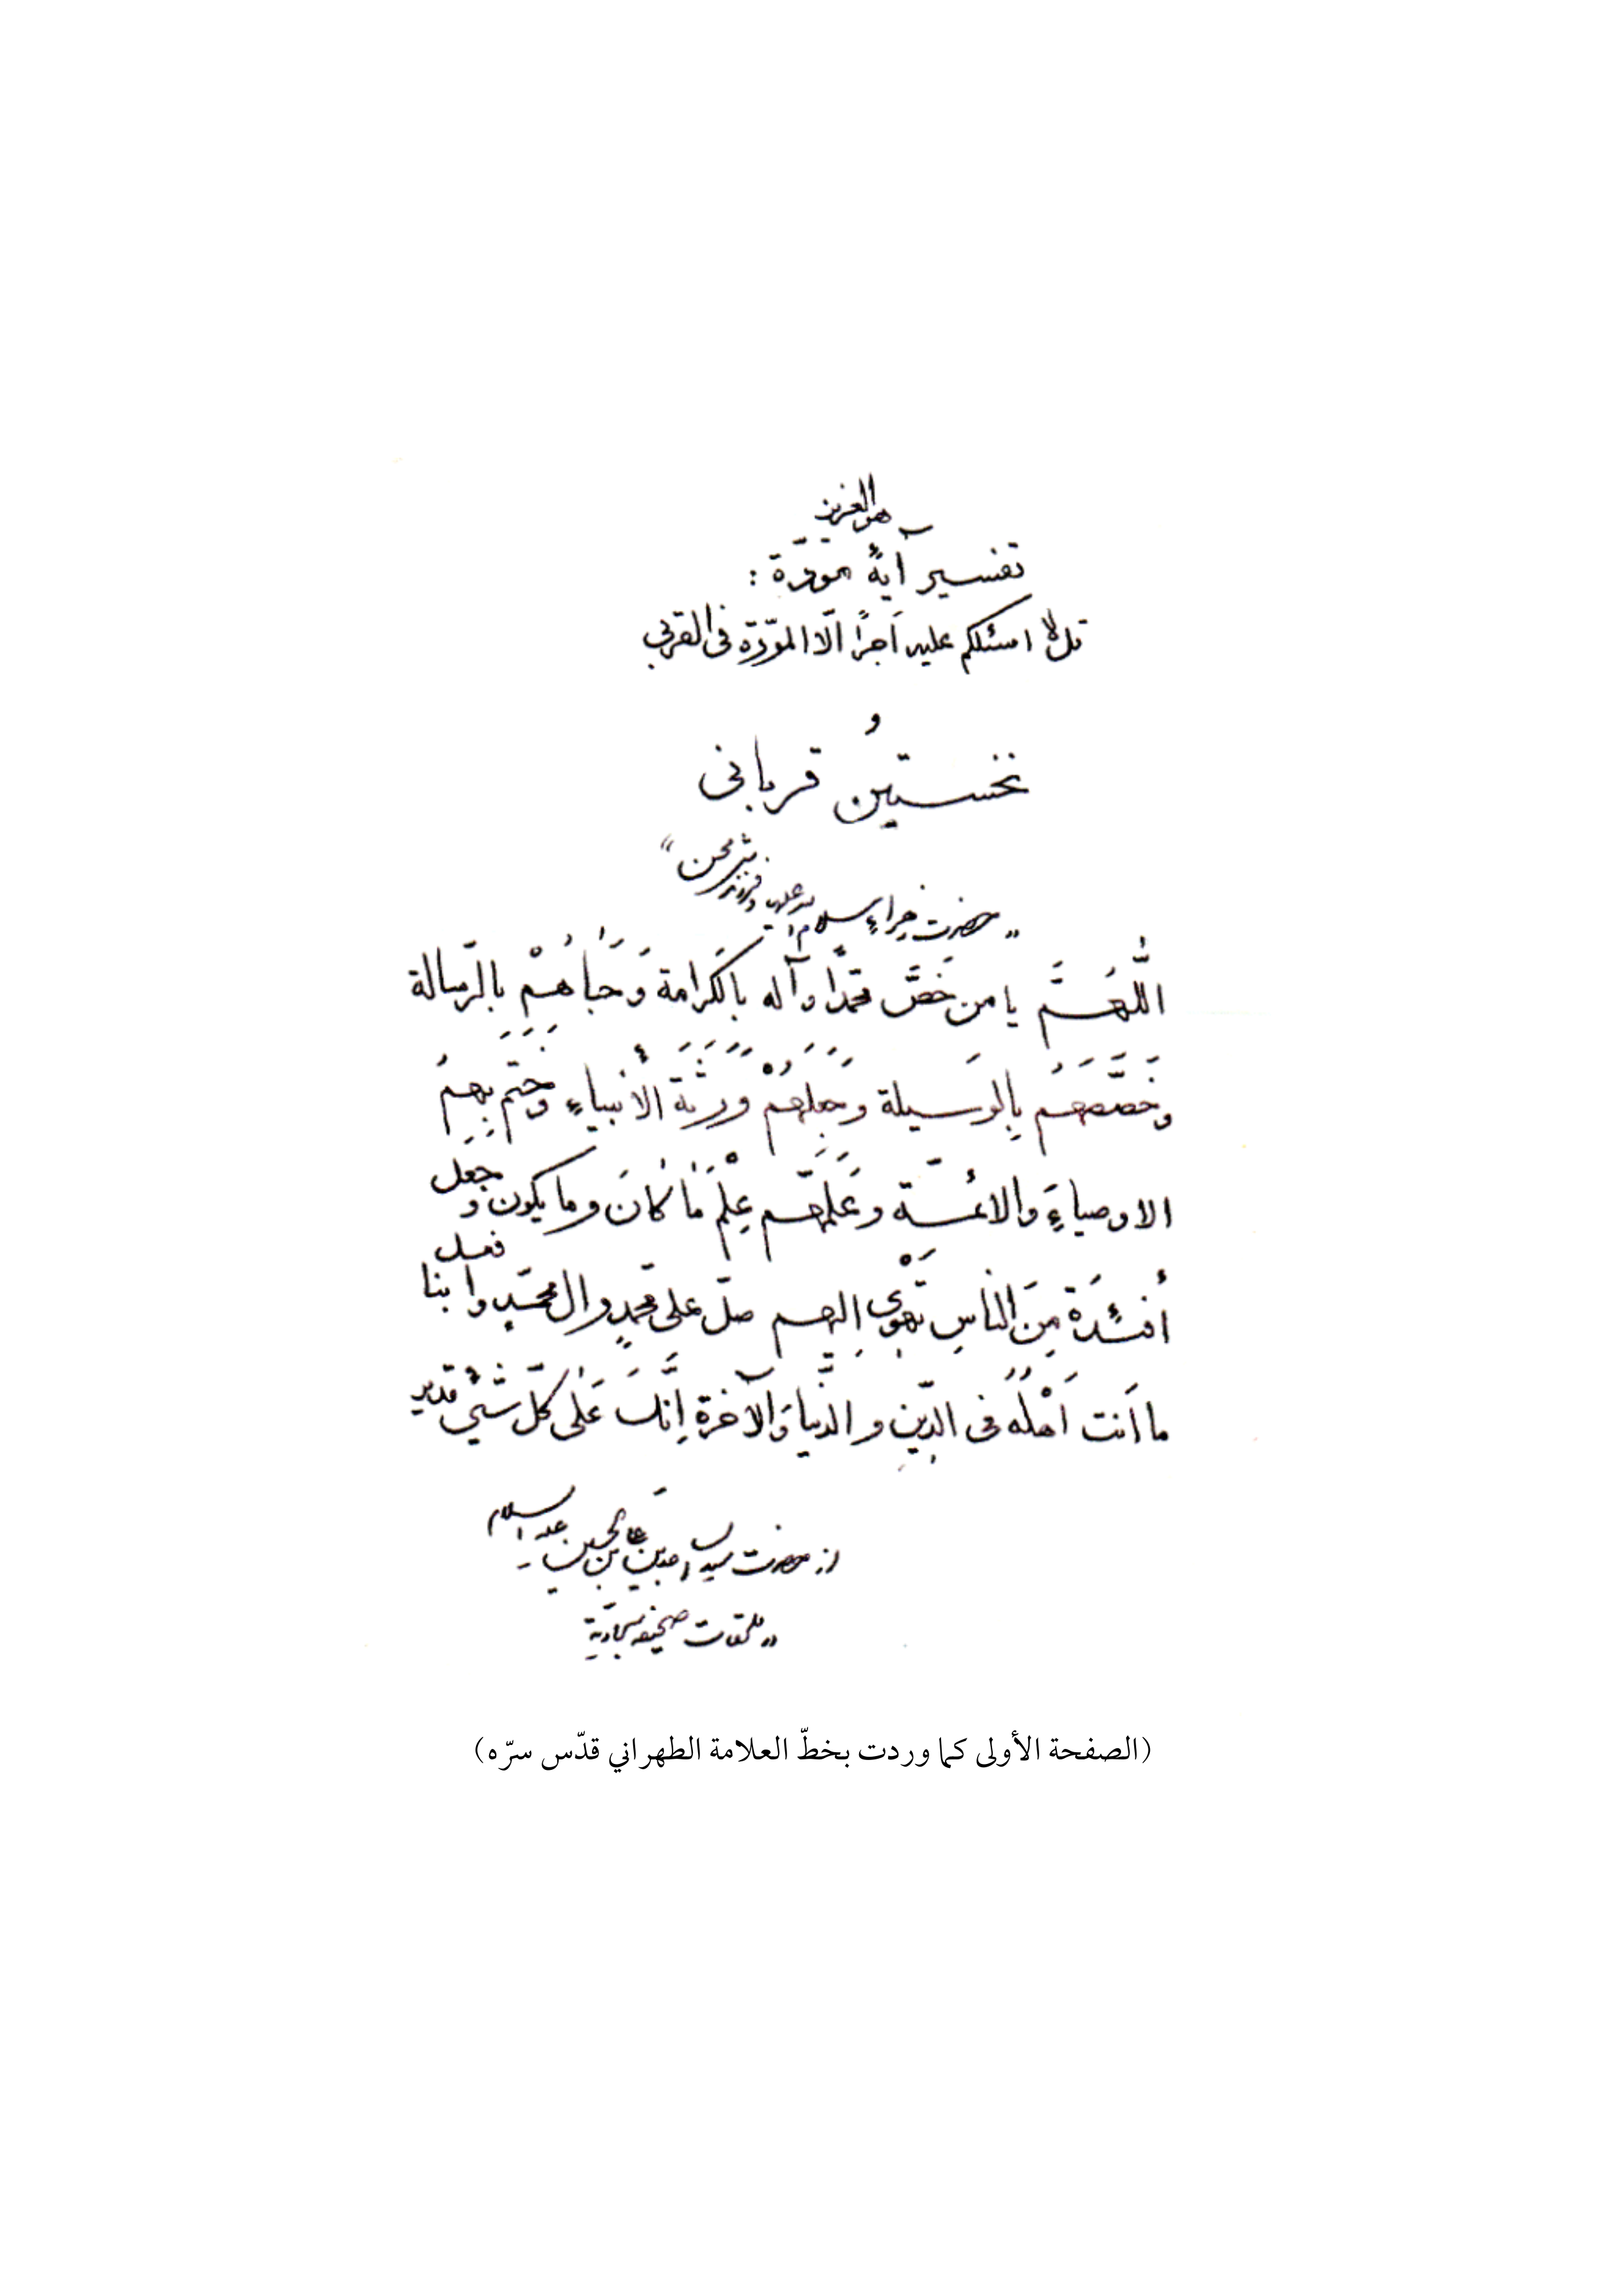 هو العزيز
تفسير آيۀ مَوَدَّة :
قل لا اسئلكم عليه اَجرًا الّا المودّة فى القربى
و
نخستين قربانى
"حضرت زهراء سلام الله عليها و فرزندش محسن"
اللَّهُمَّ يا من خَصَّ محمدًا وآله بالكَرامة وَحَبَاهُمْ بالرّسالة
وخَصَّصَهُم بِالوَسيلة وَجَعَلَهُمْ وَرَثَةَ الأنبياءِ وَخَتَمَ بِهِمُ
الاوصياءَ والائمّة وعَلَّمَهُم عِلْمَ مَا كَانَ وما يكون وَجَعَل
أفئدَةً مِنَ النَّاسِ تَهْوِى إليهم صلّ على محمدٍ وال محمّدٍ وافعل بنا
ما اَنت اَهْلُهُ فى الدّينِ و الدّنيا وَالآخرة إنَّكَ عَلَى كلّ شَيْءٍ قدير
از حضرت سيد الساجدين على بن الحسين عليه السلام
"ملحقات صحيفه سجاديّة
(الصفحة الأولى كما وردت بخطّ العلامة الطهراني قدّس سرّه)